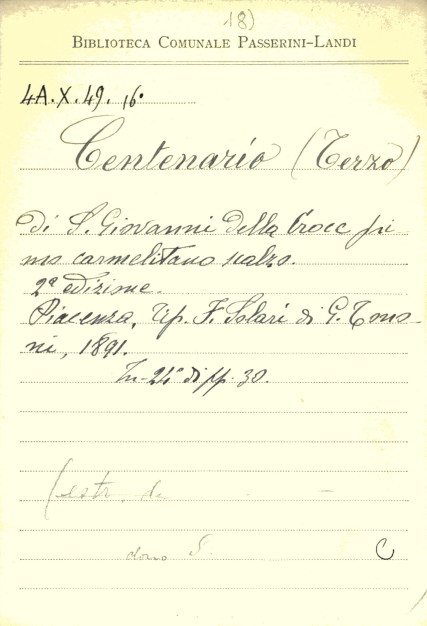 18)
BIBLIOTECA COMUNALE PASSERINI-LANDI
4A.X.49.16.
Centenario (Terzo)
di S. Giovanni della Croce pri
mo carmelitano scalzo.
2ª edizione.
Piacenza, Tip. F. Solari di G. Tono-
ni, 1891.
In-24° di pp. 30.
(estr. da
dono S.
C